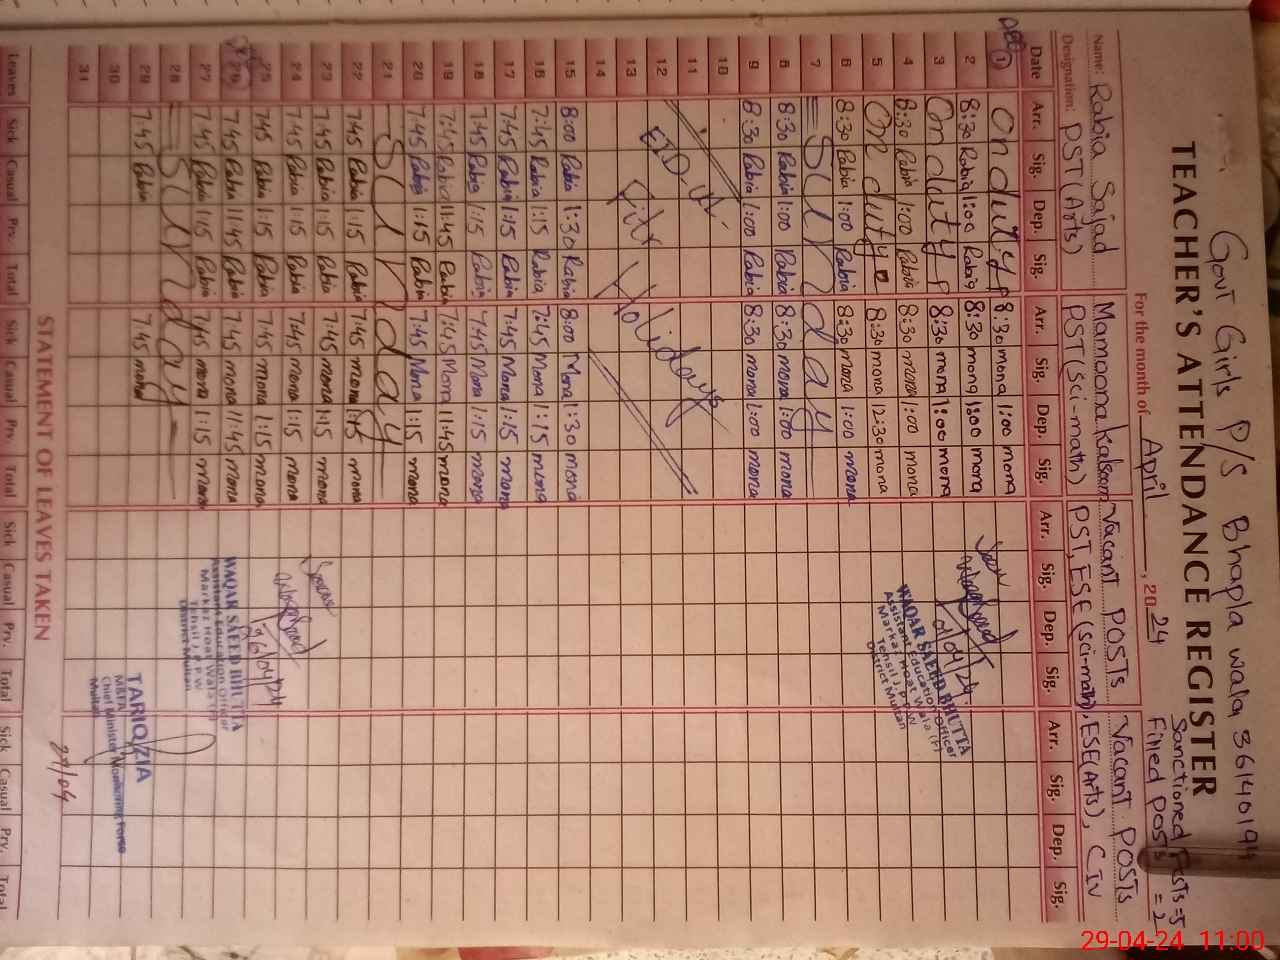 Govt Girls P/S Bhapla wala 36140194
TEACHER'S ATTENDANCE REGISTER
Sanctioned Posts = 5
Filled Posts = 2
For the month of April, 20 24
Name: Rabia Sajad Mamoona Kalsoom Vacant Posts Vacant Posts
Designation: PST (Arts) PST (Sci-math) PST, ESE (Sci-math), ESE (Arts), C IV
Date Arr. Sig. Dep. Sig. Arr. Sig. Dep. Sig. Arr. Sig. Dep. Sig. Arr. Sig. Dep. Sig.
1 On duty 8:30 mona 1:00 mona
2 8:30 Rabia 1:00 Rabia 8:30 mona 1:00 mona
3 On duty 8:30 mona 1:00 mona
4 8:30 Rabia 1:00 Rabia 8:30 mona 1:00 mona
5 On duty 8:30 mona 12:30 mona
6 8:30 Rabia 1:00 Rabia 8:30 mona 1:00 mona
7 Sunday
8 8:30 Rabia 1:00 Rabia 8:30 mona 1:00 mona
9 8:30 Rabia 1:00 Rabia 8:30 mona 1:00 mona
10
11
12 EID-UL-
13 Fitr Holidays
14
15 8:00 Rabia 1:30 Rabia 8:00 Mona 1:30 mona
16 7:45 Rabia 1:15 Rabia 7:45 Mona 1:15 mona
17 7:45 Rabia 1:15 Rabia 7:45 Mona 1:15 mona
18 7:45 Rabia 1:15 Rabia 7:45 Mona 1:15 mona
19 7:45 Rabia 11:45 Rabia 7:45 Mona 11:45 mona
20 7:45 Rabia 1:15 Rabia 7:45 Mona 1:15 mona
21 Sunday
22 7:45 Rabia 1:15 Rabia 7:45 mona 1:15 mona
23 7:45 Rabia 1:15 Rabia 7:45 mona 1:15 mona
24 7:45 Rabia 1:15 Rabia 7:45 mona 1:15 mona
25 7:45 Rabia 1:15 Rabia 7:45 mona 1:15 mona
26 7:45 Rabia 11:45 Rabia 7:45 mona 11:45 mona
27 7:45 Rabia 1:15 Rabia 7:45 mona 1:15 mona
28 Sunday
29 7:45 Rabia 7:45 mona
30
31
01/04/24
WAQAR SAEED BHUTTA
Assistant Education Officer
Markaz Hoat Wala (P)
Tehsil J.P.P.W
District Multan
26/04/24
WAQAR SAEED BHUTTA
Assistant Education Officer
Markaz Hoat Wala (P)
Tehsil J.P.P.W
District Multan
TARIQ ZIA
M&EA
Chief Minister Monitoring Force
Multan
29/04
STATEMENT OF LEAVES TAKEN
Leaves Sick Casual Prv. Total Sick Casual Prv. Total Sick Casual Prv. Total Sick Casual Prv. Total
29-04-24 11:00